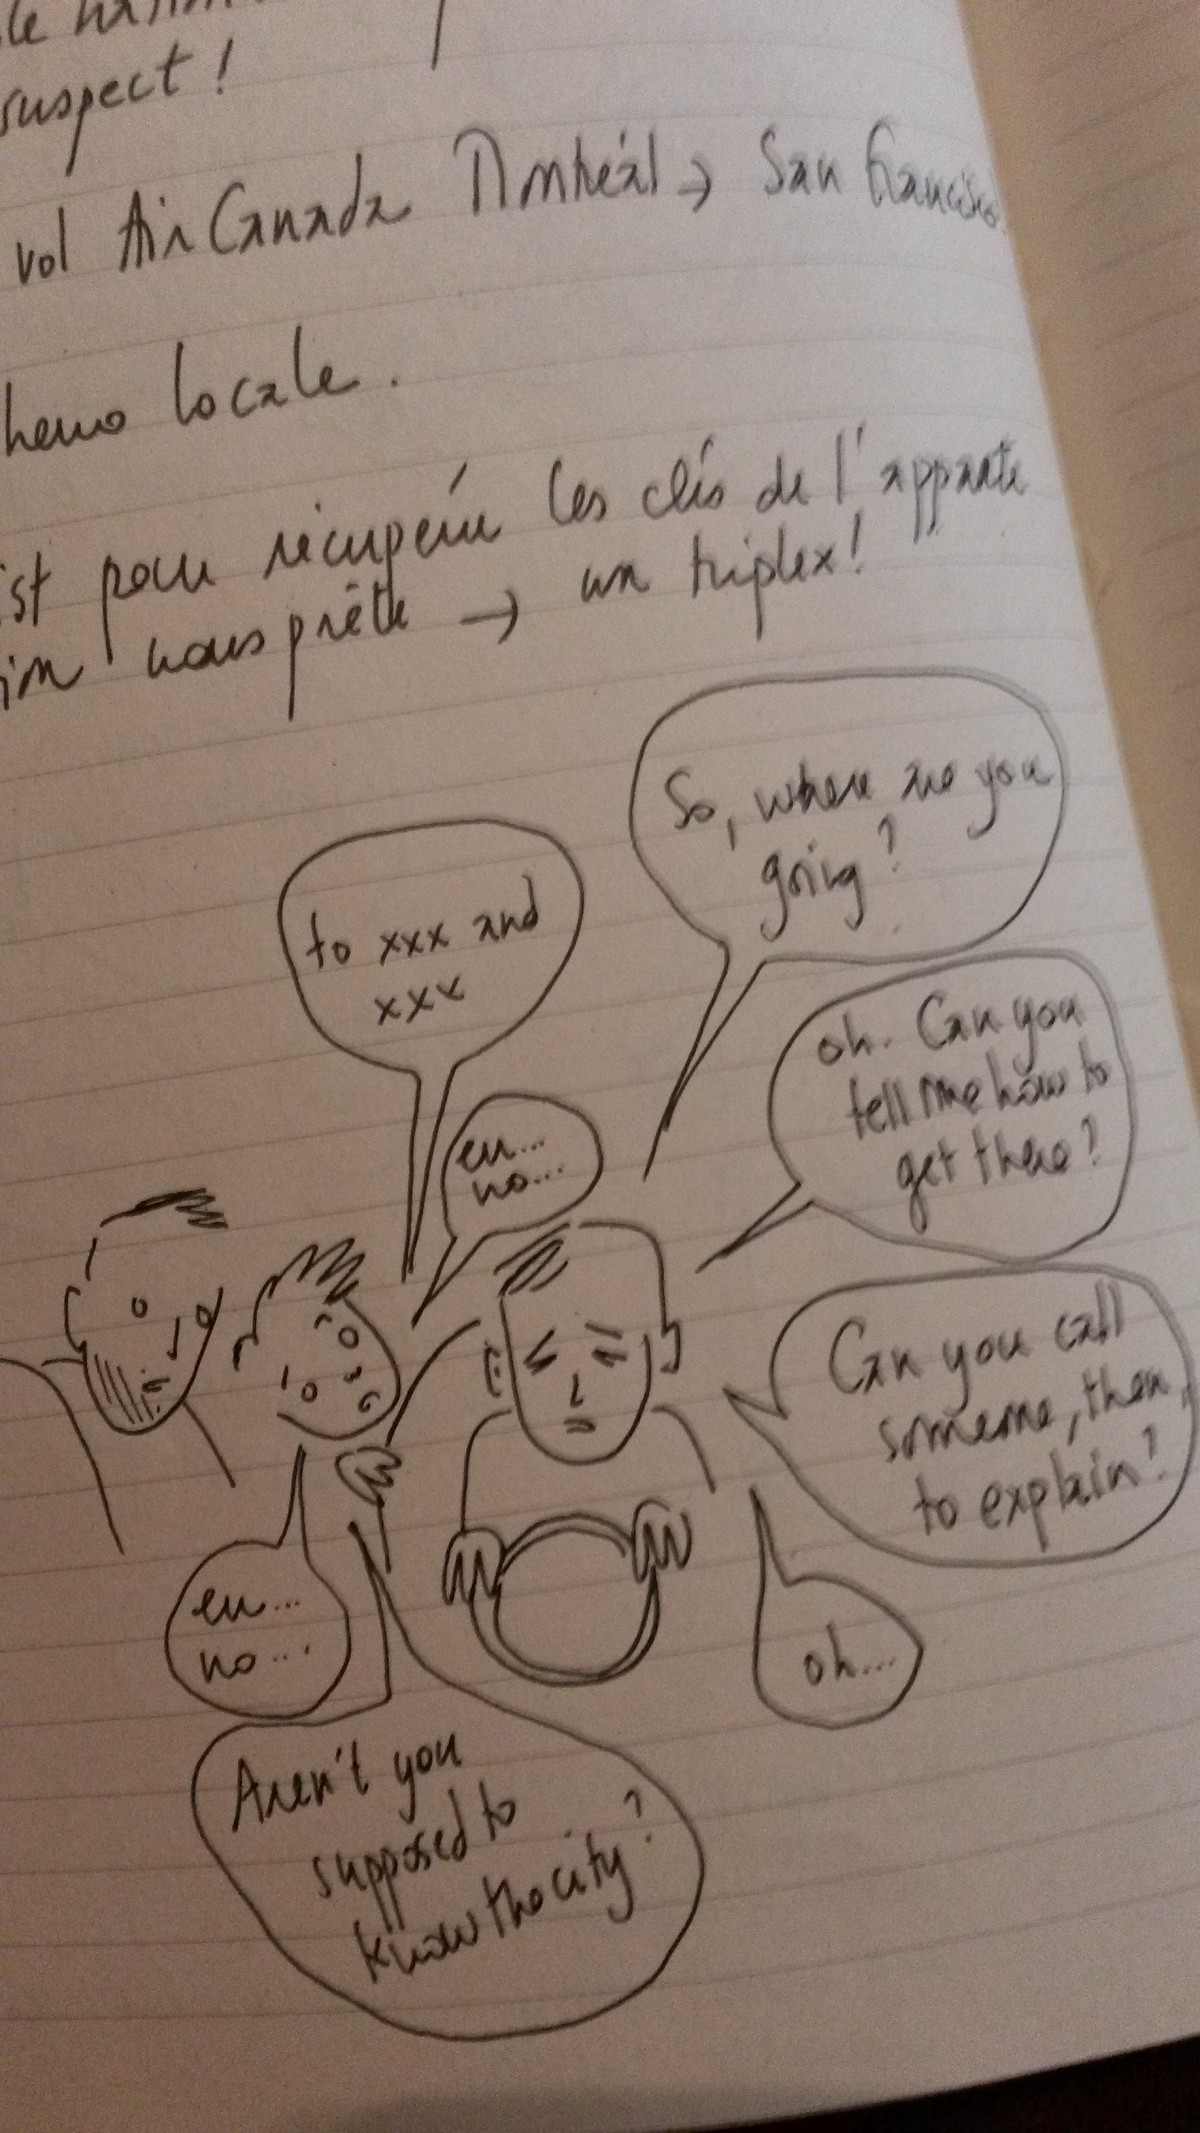 suspect !
vol Air Canada Montréal → San Francisco.
heure locale.
pour récupérer les clés de l'apparte
nous prête → un triplex !
So, where are you
going ?
to xxx and
xxx
oh. Can you
tell me how to
get there ?
eu...
no...
Can you call
someone, then,
to explain ?
eu...
no...
oh...
Aren't you
supposed to
know the city ?